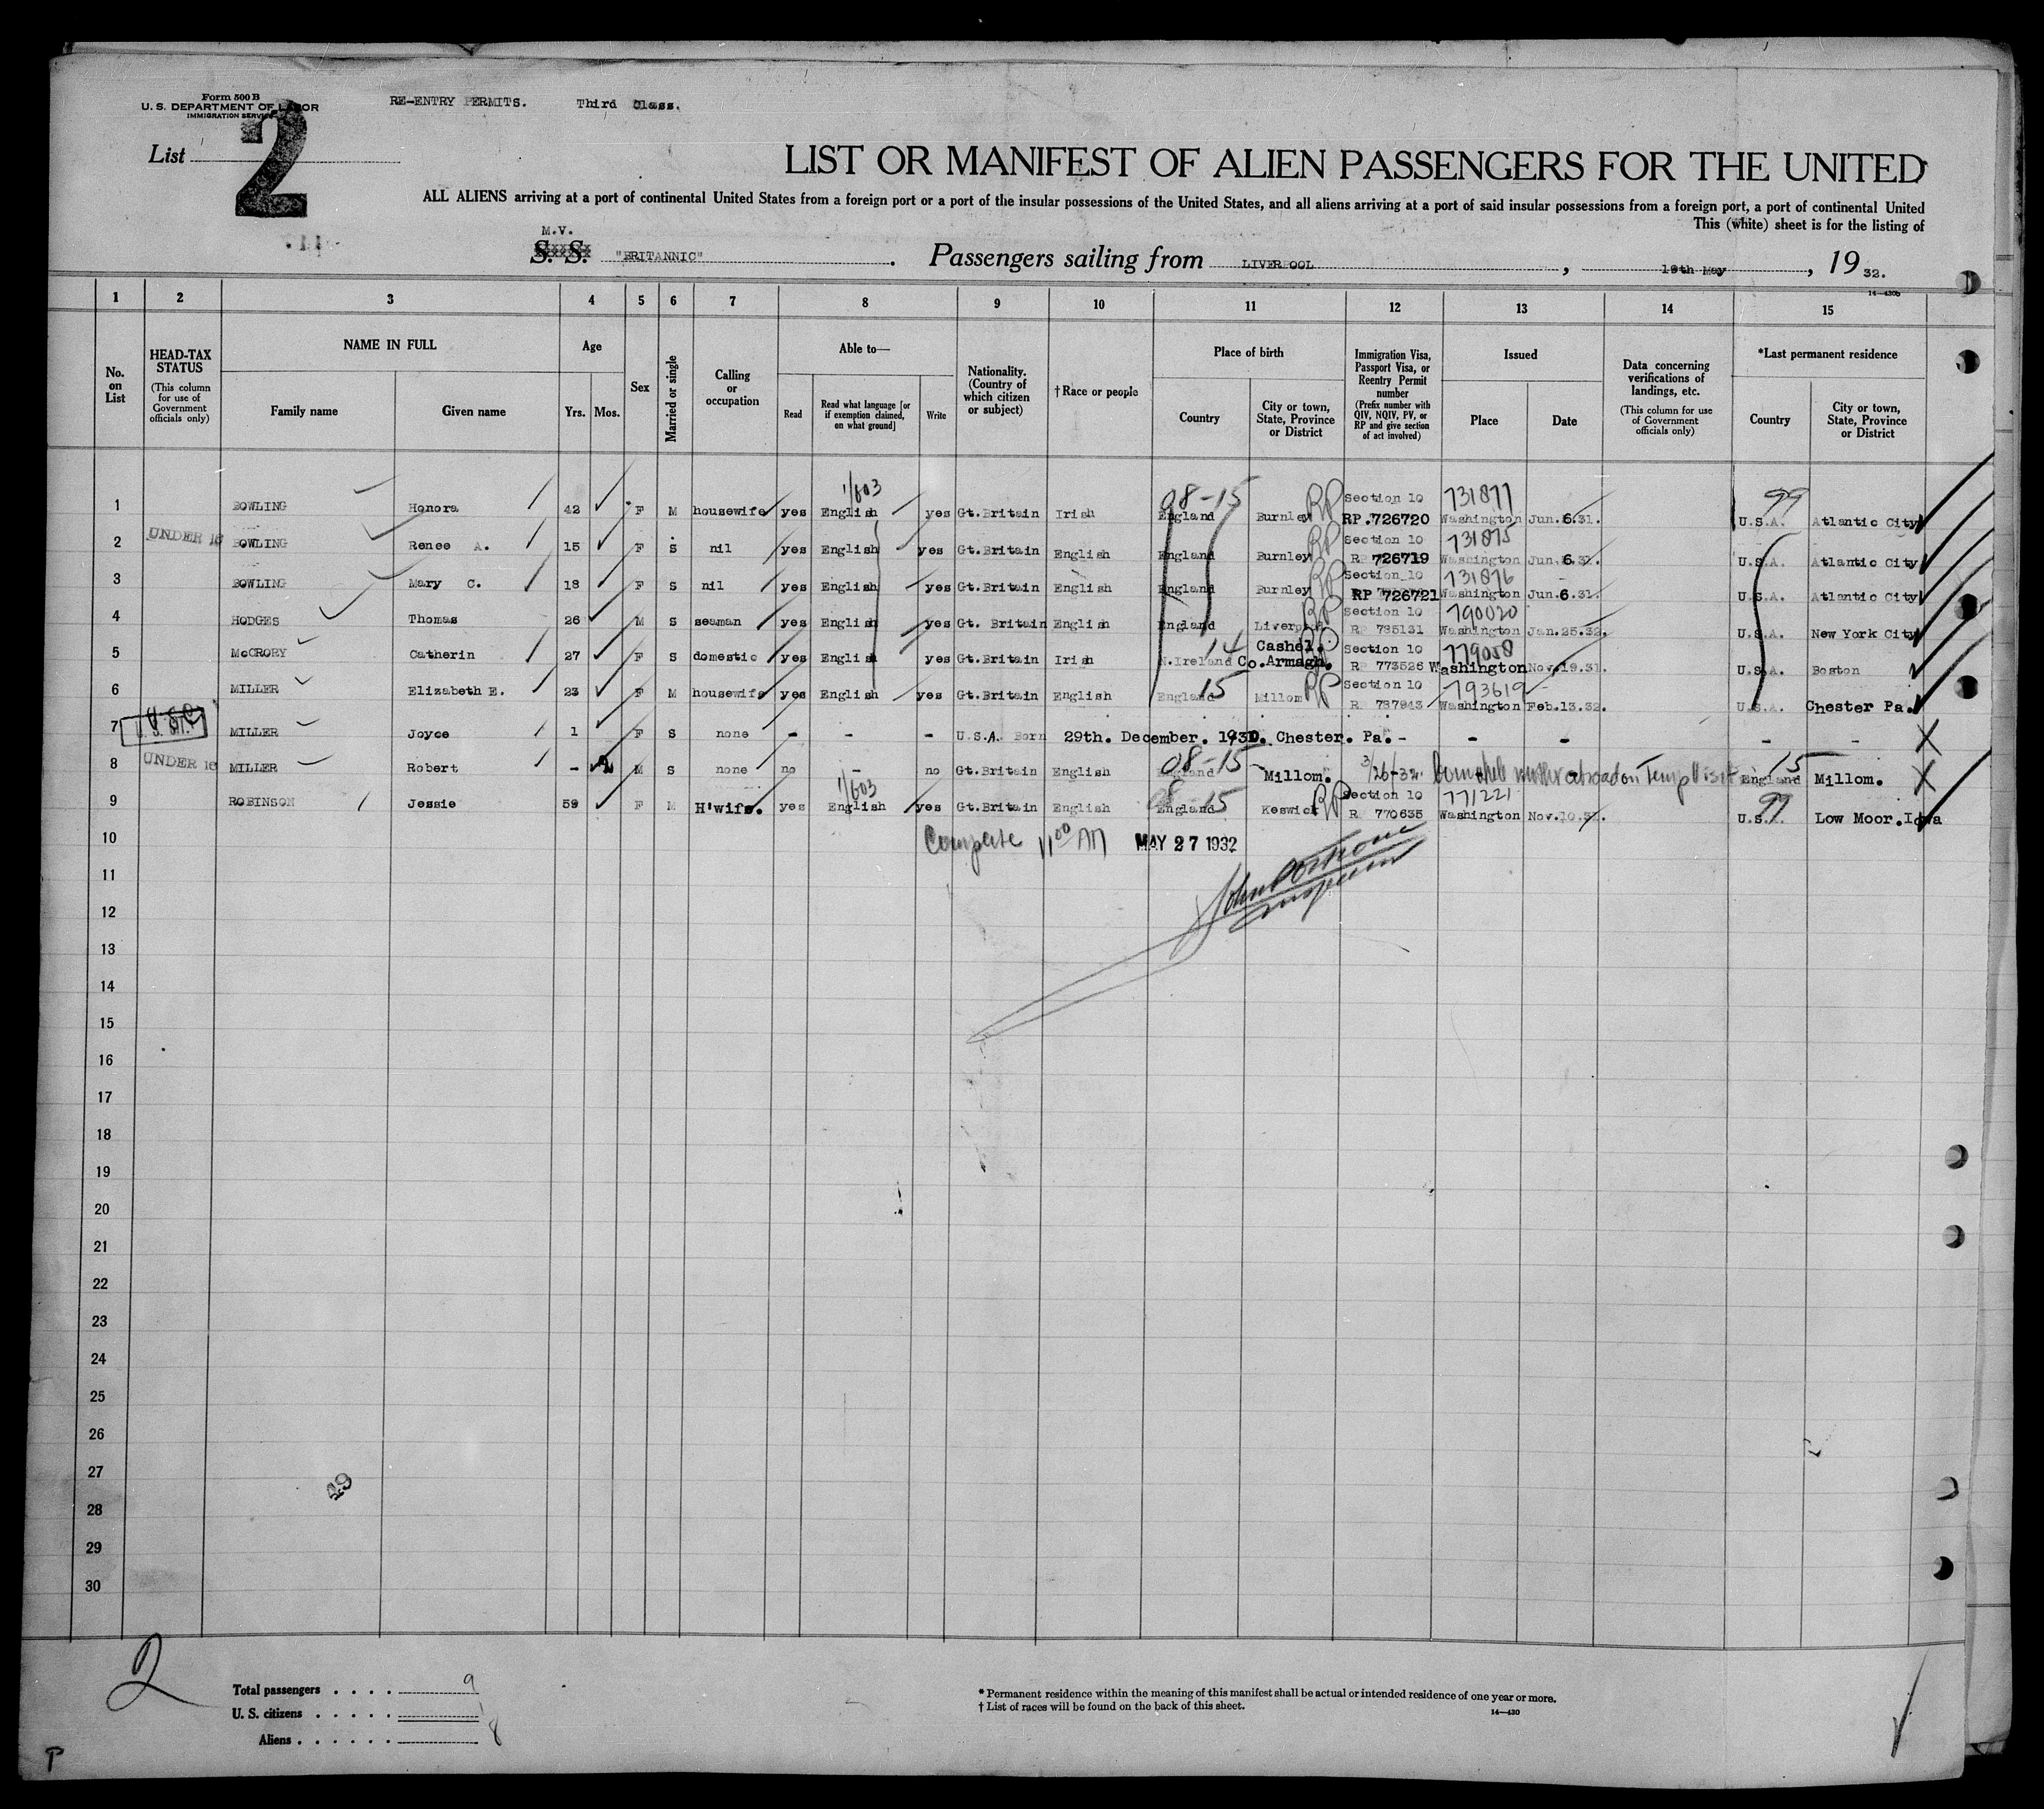 Form 500 B
U. S. DEPARTMENT OF LABOR
IMMIGRATION SERVICE
RE-ENTRY PERMITS. Third Class.
List 2
LIST OR MANIFEST OF ALIEN PASSENGERS FOR THE UNITED
ALL ALIENS arriving at a port of continental United States from a foreign port or a port of the insular possessions of the United States, and all aliens arriving at a port of said insular possessions from a foreign port, a port of continental United
This (white) sheet is for the listing of
M.V.
S. S. "BRITANNIC". Passengers sailing from LIVERPOOL, 19th May, 19 32.
14—430b
1 2 3 4 5 6 7 8 9 10 11 12 13 14 15
No. on List
HEAD-TAX STATUS (This column for use of Government officials only)
NAME IN FULL Family name Given name
Age Yrs. Mos.
Sex
Married or single
Calling or occupation
Able to— Read Read what language [or if exemption claimed, on what ground] Write
Nationality. (Country of which citizen or subject)
†Race or people
Place of birth Country City or town, State, Province or District
Immigration Visa, Passport Visa, or Reentry Permit number (Prefix number with QIV, NQIV, PV, or RP and give section of act involved)
Issued Place Date
Data concerning verifications of landings, etc. (This column for use of Government officials only)
*Last permanent residence Country City or town, State, Province or District
1/603 08-15 RP Section 10 731877 99
1 BOWLING Honora 42 F M housewife yes English yes Gt.Britain Irish England Burnley RP.726720 Washington Jun.6.31. U.S.A. Atlantic City
RP Section 10 731875
2 UNDER 16 BOWLING Renee A. 15 F S nil yes English yes Gt.Britain English England Burnley RP 726719 Washington Jun.6.31. U.S.A. Atlantic City
RP Section 10 731876
3 BOWLING Mary C. 18 F S nil yes English yes Gt.Britain English England Burnley RP 726721 Washington Jun.6.31. U.S.A. Atlantic City
RP Section 10 790020
4 HODGES Thomas 26 M S seaman yes English yes Gt. Britain English England Liverpool RP 785131 Washington Jan.25.32. U.S.A. New York City
14 Cashel. RP Section 10 779058
5 McCRORY Catherin 27 F S domestic yes English yes Gt.Britain Irish N.Ireland Co.Armagh. R 773526 Washington Nov.19.31. U.S.A. Boston
15 RP Section 10 793619
6 MILLER Elizabeth E. 23 F M housewife yes English yes Gt.Britain English England Millom R 787943 Washington Feb.13.32. U.S.A. Chester Pa.
U.S.C.
7 MILLER Joyce 1 F S none - - - U.S.A. Born 29th. December. 1930. Chester. Pa. - - - - -
08-15 15
8 UNDER 16 MILLER Robert - 2 M S none no - no Gt.Britain English England Millom. 3/26-32 mother abroad on Temp Visit England Millom.
1/603 08-15 RP Section 10 771221 99
9 ROBINSON Jessie 59 F M H'wife. yes English yes Gt.Britain English England Keswick R 770635 Washington Nov.10.31. U.S.A. Low Moor.Iowa
10 Complete 11 00 AM MAY 27 1932
11 John
12 Inspector
13
14
15
16
17
18
19
20
21
22
23
24
25
26
27
49
28
29
30
2
Total passengers . . . . 9
U. S. citizens . . . . . 1
Aliens . . . . . . 8
* Permanent residence within the meaning of this manifest shall be actual or intended residence of one year or more.
† List of races will be found on the back of this sheet.
14—430
P